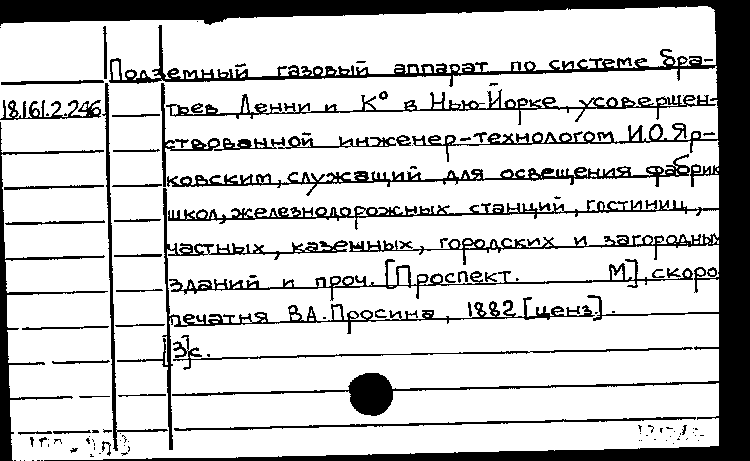 Подземный газовый аппарат по системе бра-
18.161.2.246. тьев Денни и К° в Нью-Йорке, усовершен-
ствованной инженер-технологом И.О. Яр-
ковским, служащий для освещения фабрик
школ, железнодорожных станций, гостиниц,
частных, каземных, городских и загородных
зданий и проч. [Проспект. М.], скоро
печатня В.А. Просина, 1882 [ценз.].
[3]с.